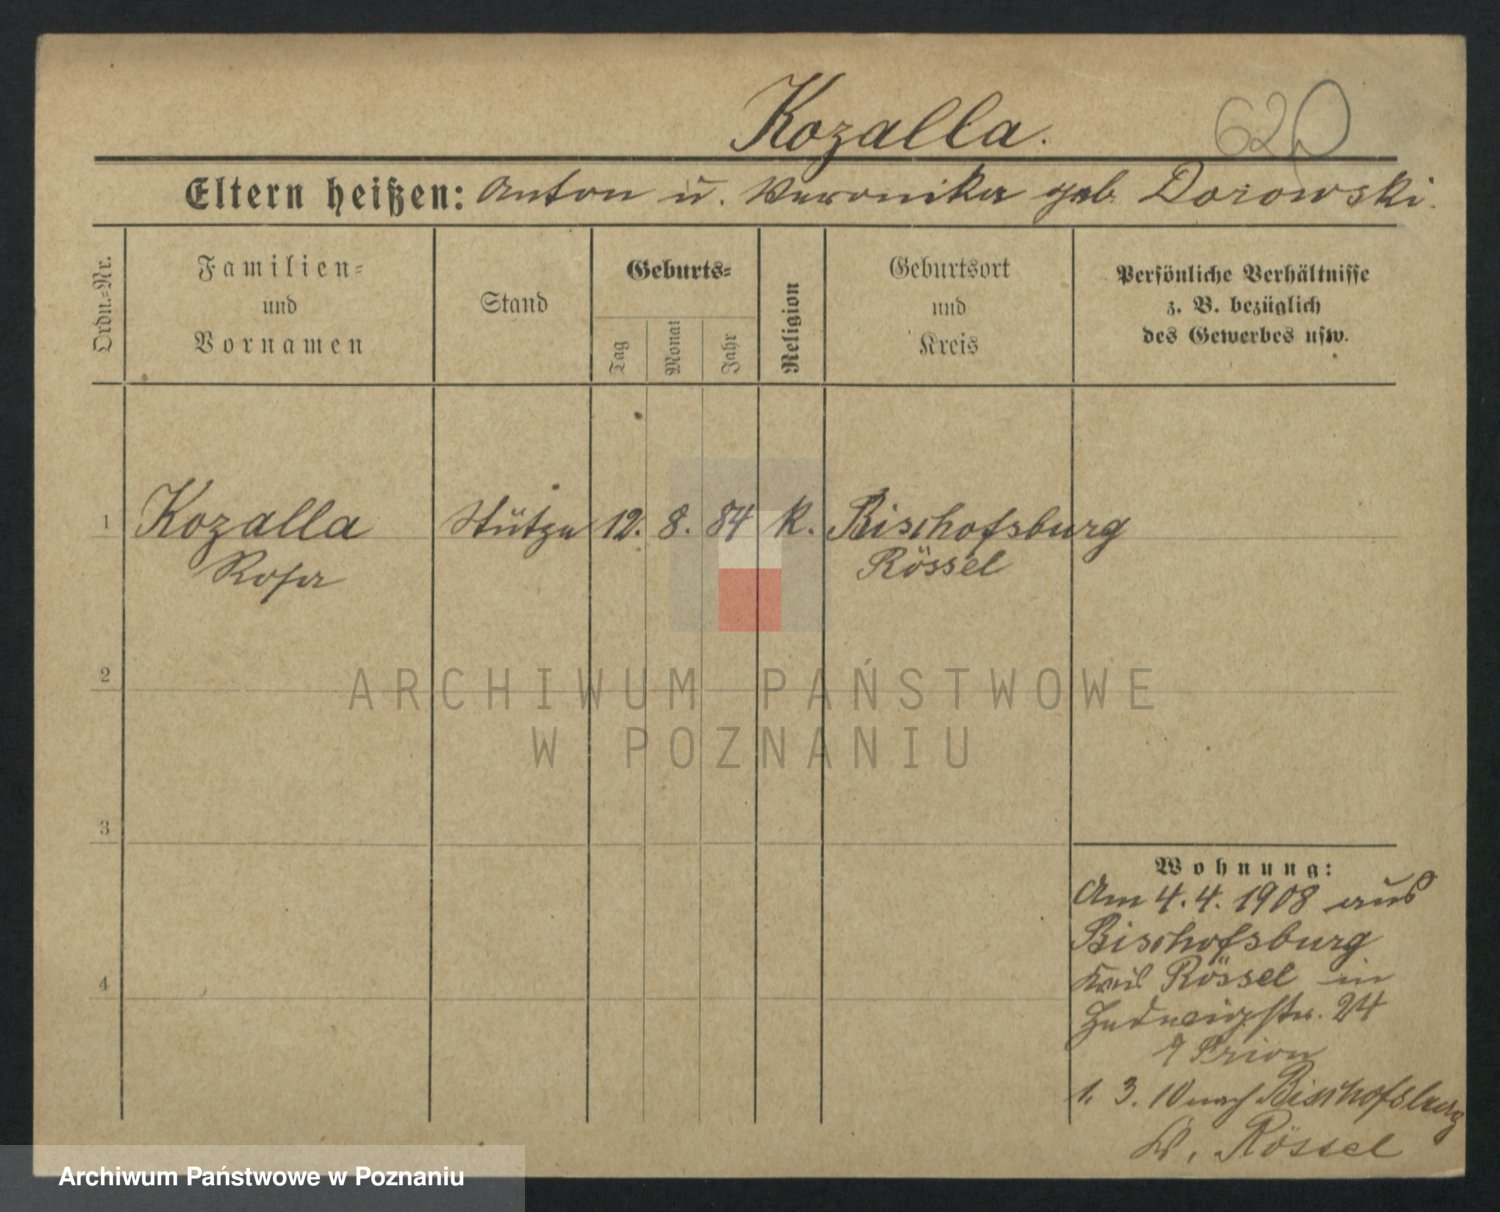 Kozalla.
620
Eltern heißen: Anton u. Veronika geb. Dorowski.
Ordn.-Nr.
Familien-
und
Vornamen
Stand
Geburts-
Tag
Monat
Jahr
Religion
Geburtsort
und
Kreis
Persönliche Verhältnisse
z. B. bezüglich
des Gewerbes usw.
1 Kozalla Stütze 12. 8. 84 k. Bischofsburg
Rosa Rössel
2
3
4
Wohnung:
Am 4.4. 1908 aus
Bischofsburg
Kreis Rössel in
Hedwigstr. 24
Prion
1. 3. 10 nach Bischofsburg
K. Rössel
ARCHIWUM PAŃSTWOWE
W POZNANIU
Archiwum Państwowe w Poznaniu